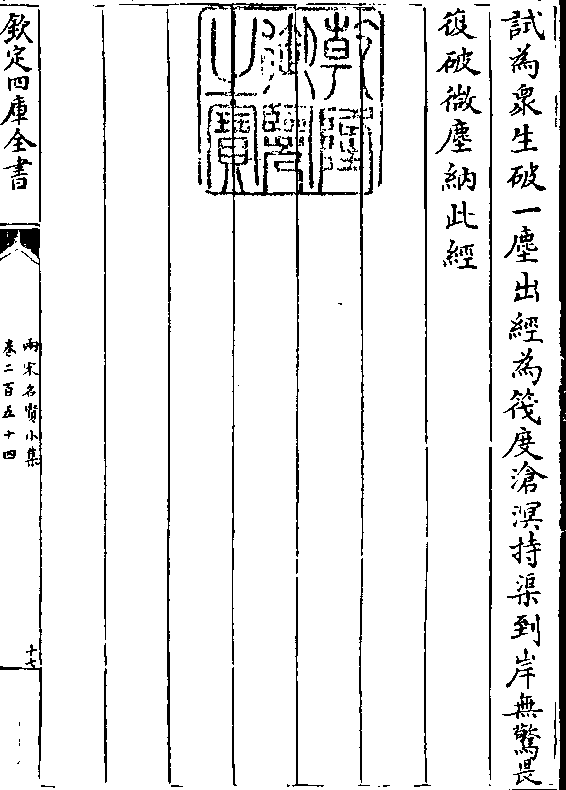 試為衆生破一塵出經為筏度滄溟持渠到岸無驚畏
復破微塵納此經
乾隆御覽之寶
欽定四庫全書
兩宋名賢小集
卷二百五十四
十七